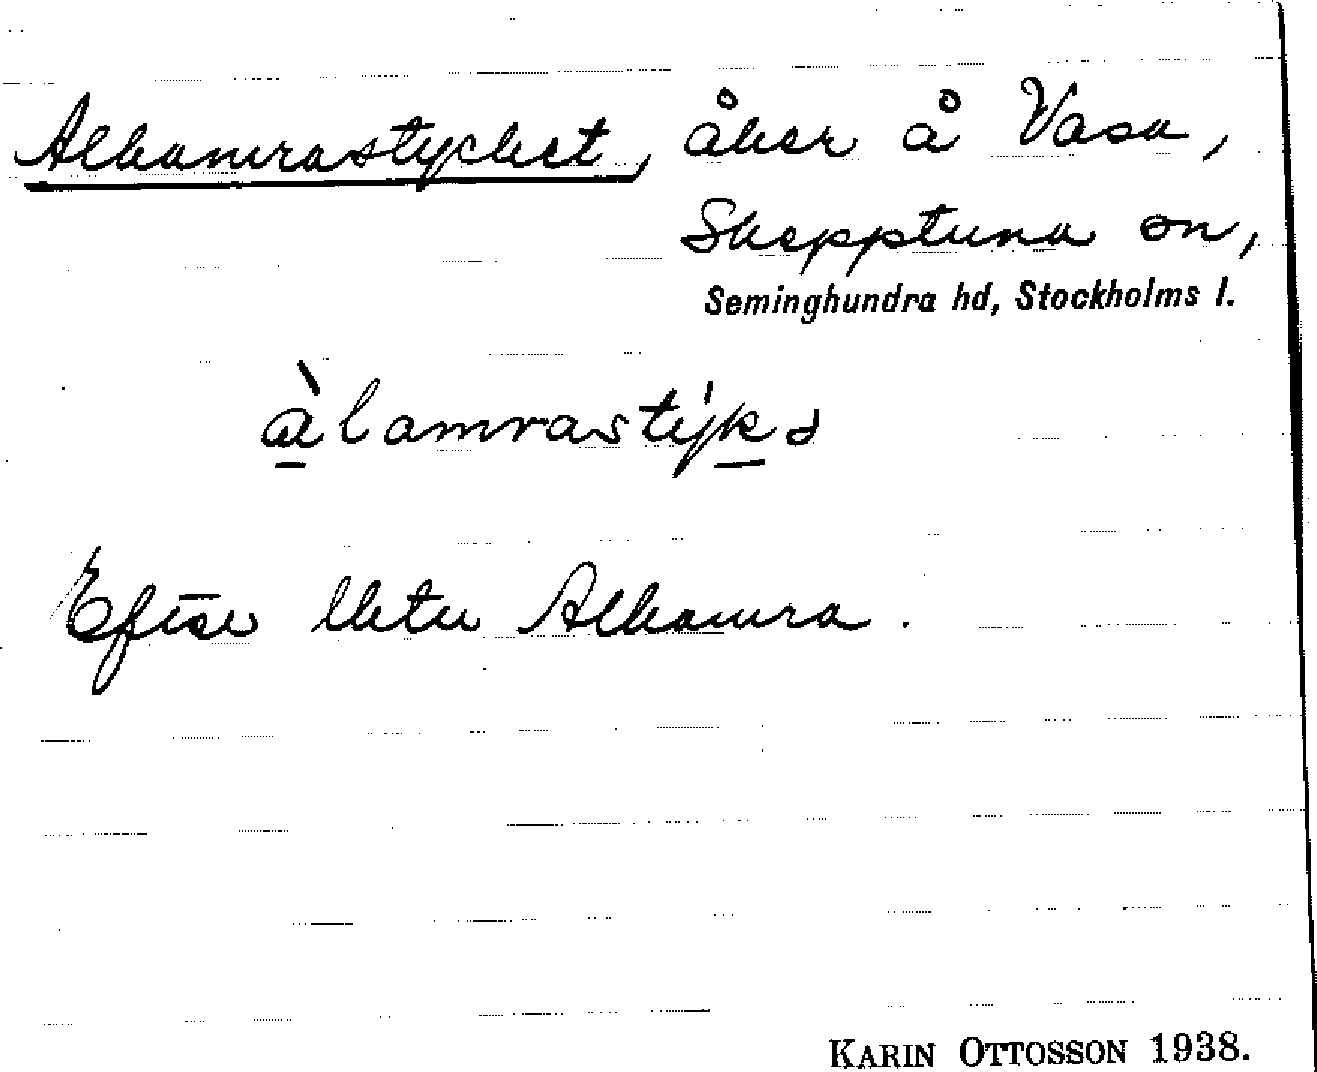 Alhamrastycket, åker å Vasa,
Skepptuna sn,
Seminghundra hd, Stockholms l.
àlamrastýkə
Efter Alhamra.
KARIN OTTOSSON 1938.